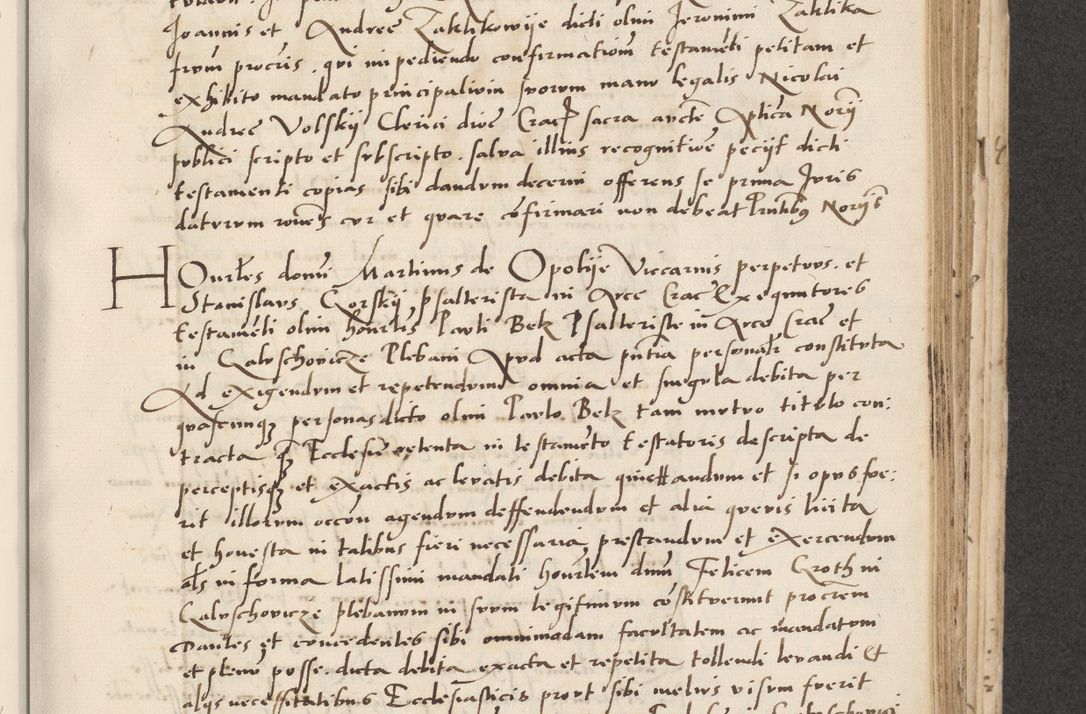 Joannis et Andree Zaklikowije dicti olim Jeronimi Zaklika
frum procris . qui impediendo confirmationem testamenti petitam et
exhibito mandato principalium suorum manu legalis Nicolai
Andree Volskij Clerici dioc Crac sacra aucte Aplica Norij
publici scripto et subscripto . salva illius recognitione peciit dicti
testamenti copias sibi dandum decerni offerens se prima Juris
daturum rones cur et quare cofirmari non debeat Pntibus Norijs
HOurles domi Martinus de Opolije Viccarius perpetuus . et
Stanislaus Gorskij psalterista in Arce Crac Exequutores
testameti olim hourles Pauli Belz Psalteriste in Arce Crac et
in Galuschovicze Plebani Apud acta pntia personalr constituta
Ad exigendum et repetendum omnia et singula debita per
quascunque personas dicto olim Paulo Belz tam mutuo titulo con:
tracta q Ecclesie retenta in testamento testatoris descripta de
perceptisque et exactis ac levatis debita quiettandum et si opus fue:
rit illorum occon agendum deffendendum et alia quevis licita
et honesta in talibus fieri necessaria prestandum et exercendum
als in forma latissimi mandati hourlem dnm Felicem Groth in
Galuschovicze plebanum in suum legitimum costituerunt procrem
Dantes et concedentes sibi omnimodam facultatem ac mandatum
et plenu posse . dicta debita exacta et repetita tollendi levandi et
alijs necessitatibus Ecclesiasticis prout sibi melius visum fuerit